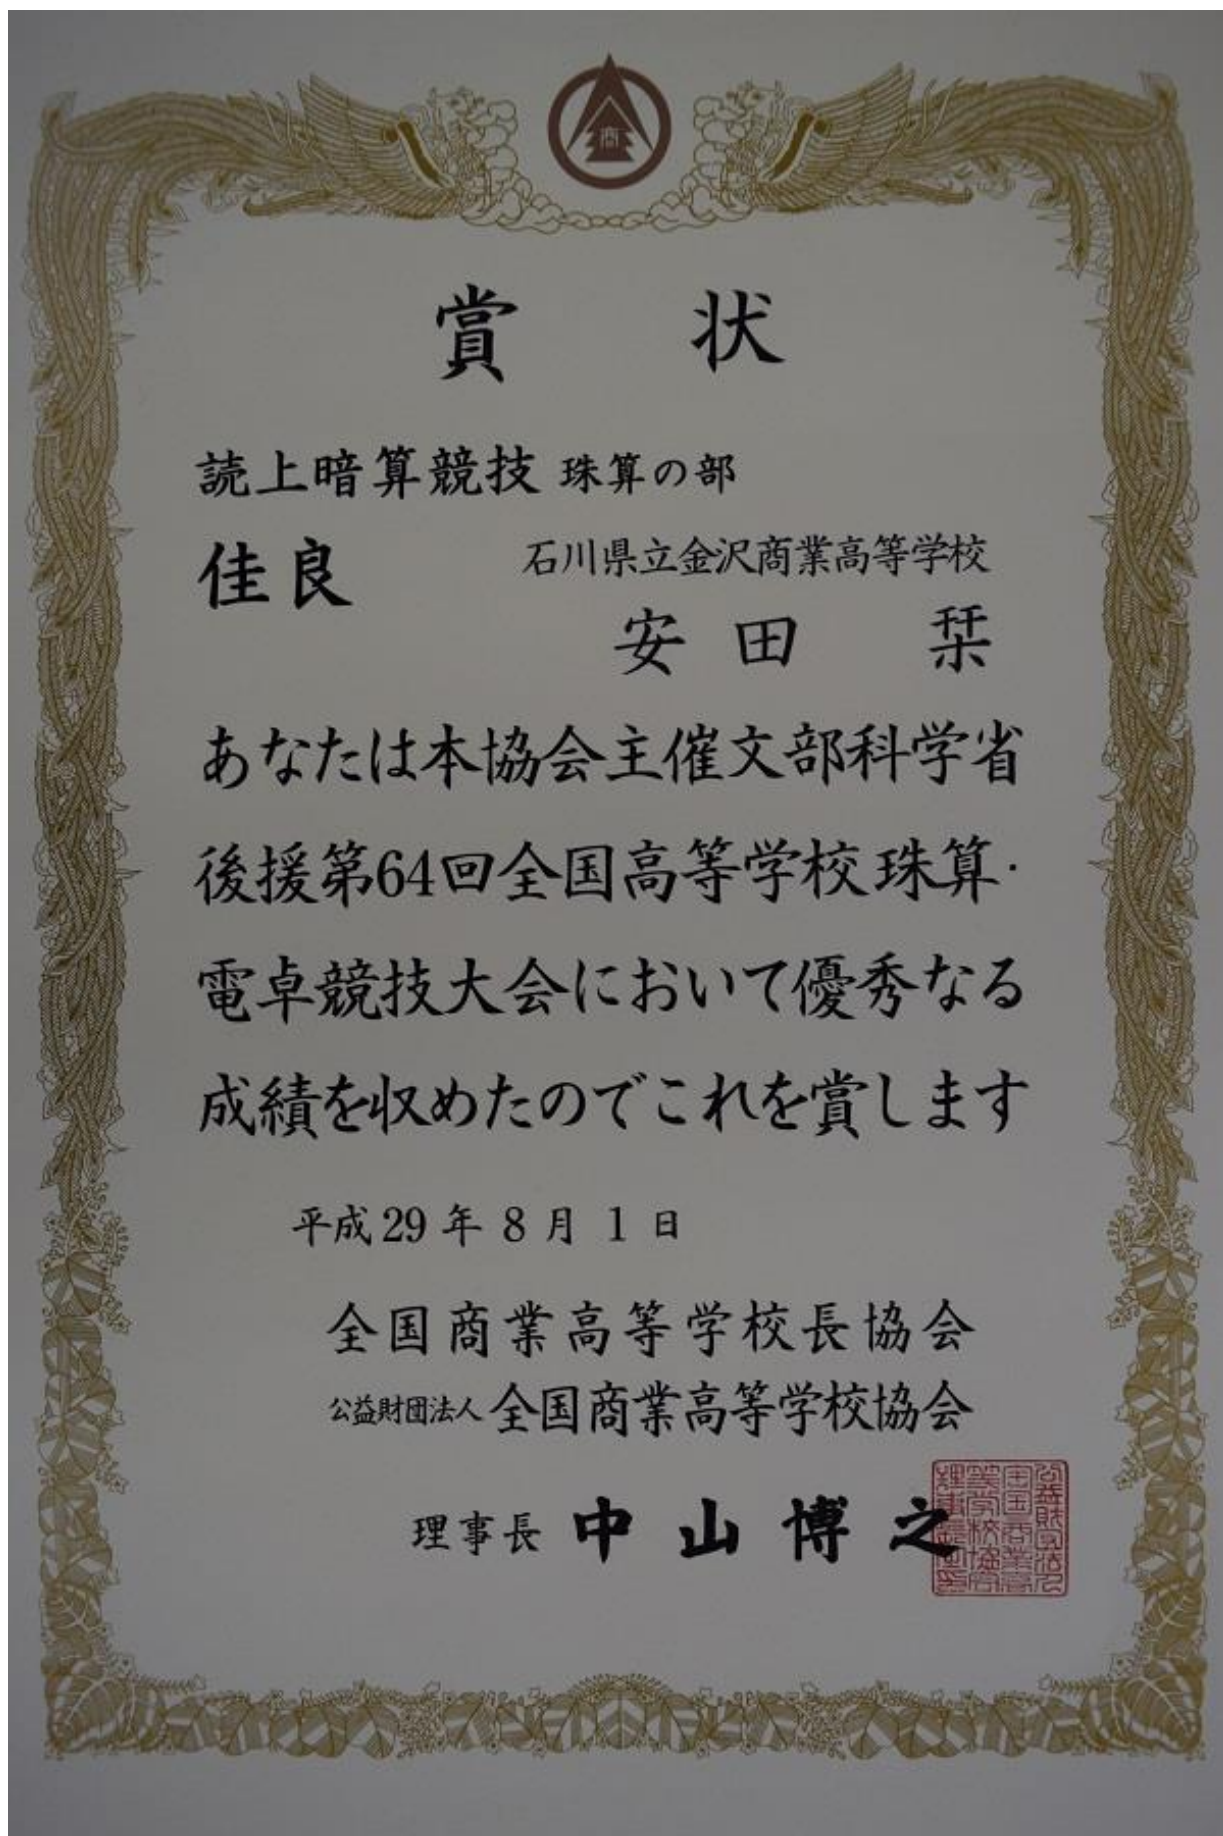 商
賞状
読上暗算競技 珠算の部
佳良
石川県立金沢商業高等学校
安田 栞
あなたは本協会主催文部科学省
後援第64回全国高等学校珠算・
電卓競技大会において優秀なる
成績を収めたのでこれを賞します
平成29年8月1日
全国商業高等学校長協会
公益財団法人全国商業高等学校協会
理事長 中山博之